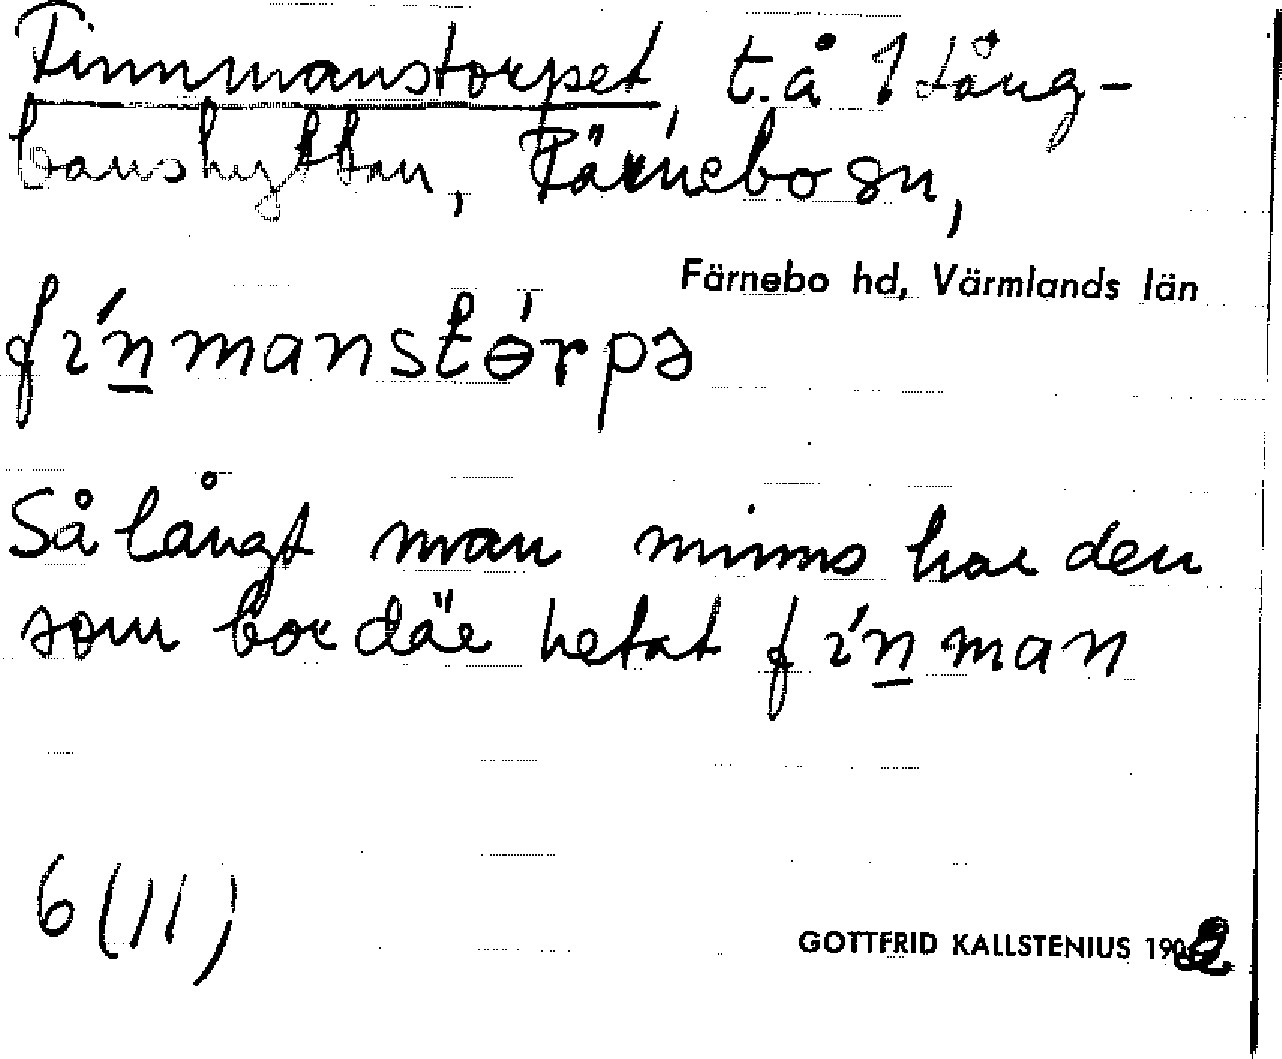 Finnmanstorpet, t. å 1 Lång-
banshyttan, Färnebo sn,
Färnebo hd, Värmlands län
fɩ́n̲manstɵ́rpə
Så långt man minns har den
som bor där hetat fɩ́n̲man
6 (11)
GOTTFRID KALLSTENIUS 1902